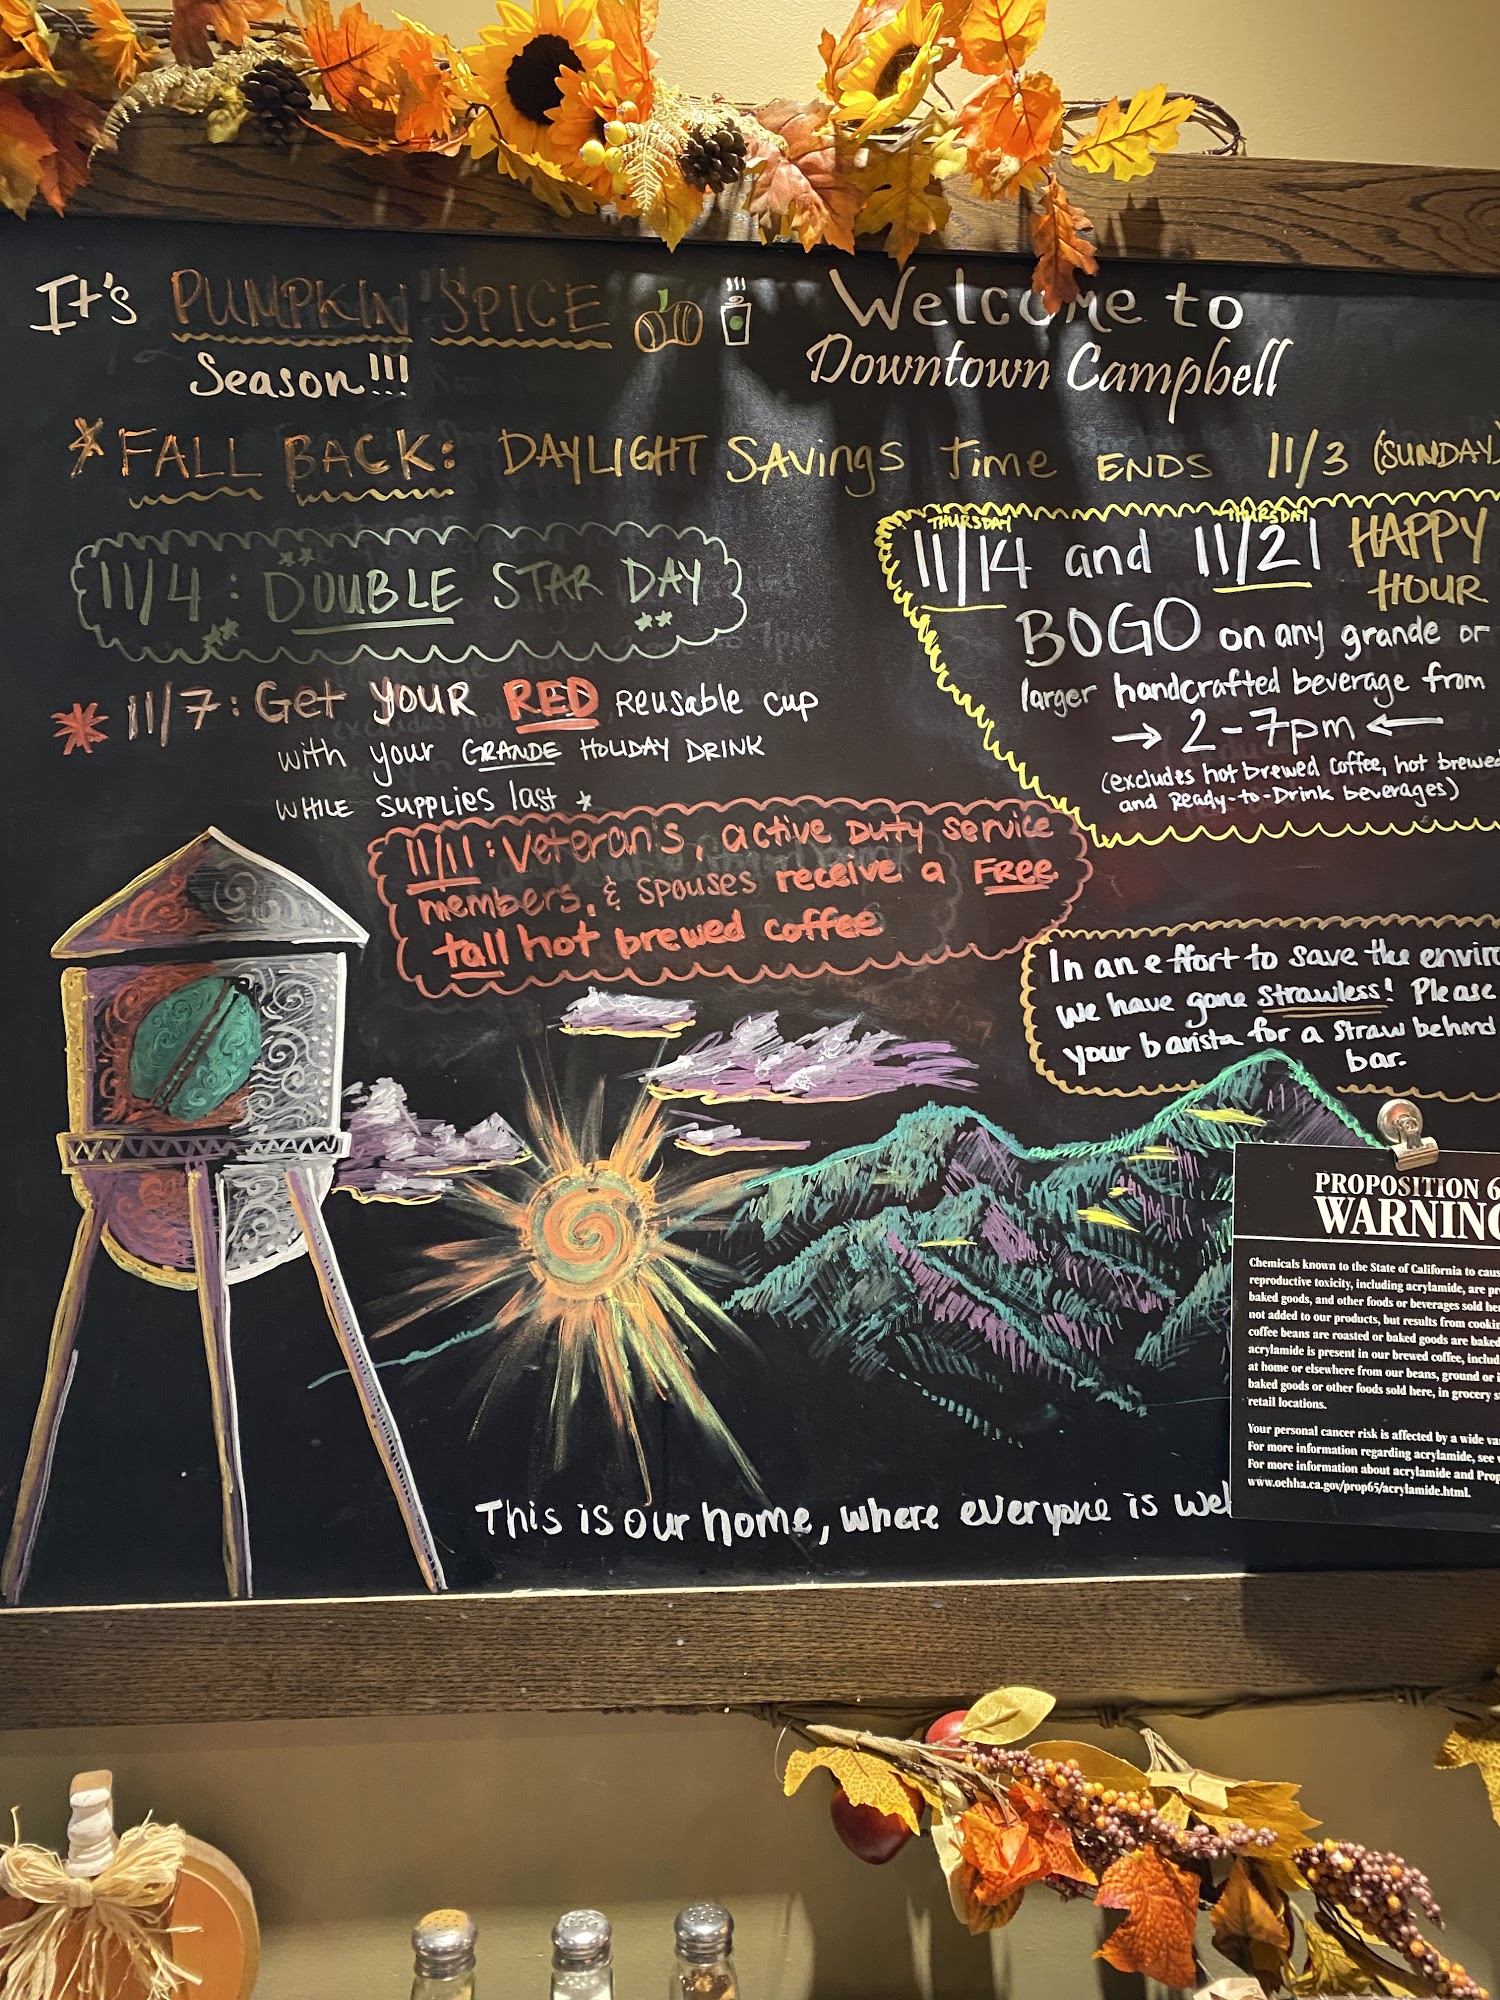 It's PUMPKIN SPICE
Season!!!
Welcome to
Downtown Campbell
*FALL BACK: DAYLIGHT SAVINGS Time ENDS 11/3 (SUNDAY)
11/4: DOUBLE STAR DAY
* 11/7: Get YOUR RED REUSABLE cup
with your GRANDE HOLIDAY DRINK
WHILE SUPPLIES last *
THURSDAY THURSDAY
11/14 and 11/21 HAPPY
HOUR
BOGO on any grande or
larger handcrafted beverage from
→ 2-7pm ←
(excludes hot brewed coffee, hot brewed
and Ready-to-Drink beverages)
11/11: Veteran's, active DUTY service
members, & SPOUSES receive a FREE
tall hot brewed coffee
In an effort to save the
we have gone strawless! Please
your barista for a straw behind
bar.
PROPOSITION
WARNING
Chemicals known to the State of California to
reproductive toxicity, including acrylamide, are
baked goods, and other foods or beverages sold
not added to our products, but results from
coffee beans are roasted or baked goods are baked
acrylamide is present in our brewed coffee,
at home or elsewhere from our beans, ground or
baked goods or other foods sold here, in grocery
retail locations.
Your personal cancer risk is affected by a wide
For more information regarding acrylamide, see
For more information about acrylamide and
www.oehha.ca.gov/prop65/acrylamide.html.
This is our home, where everyone is